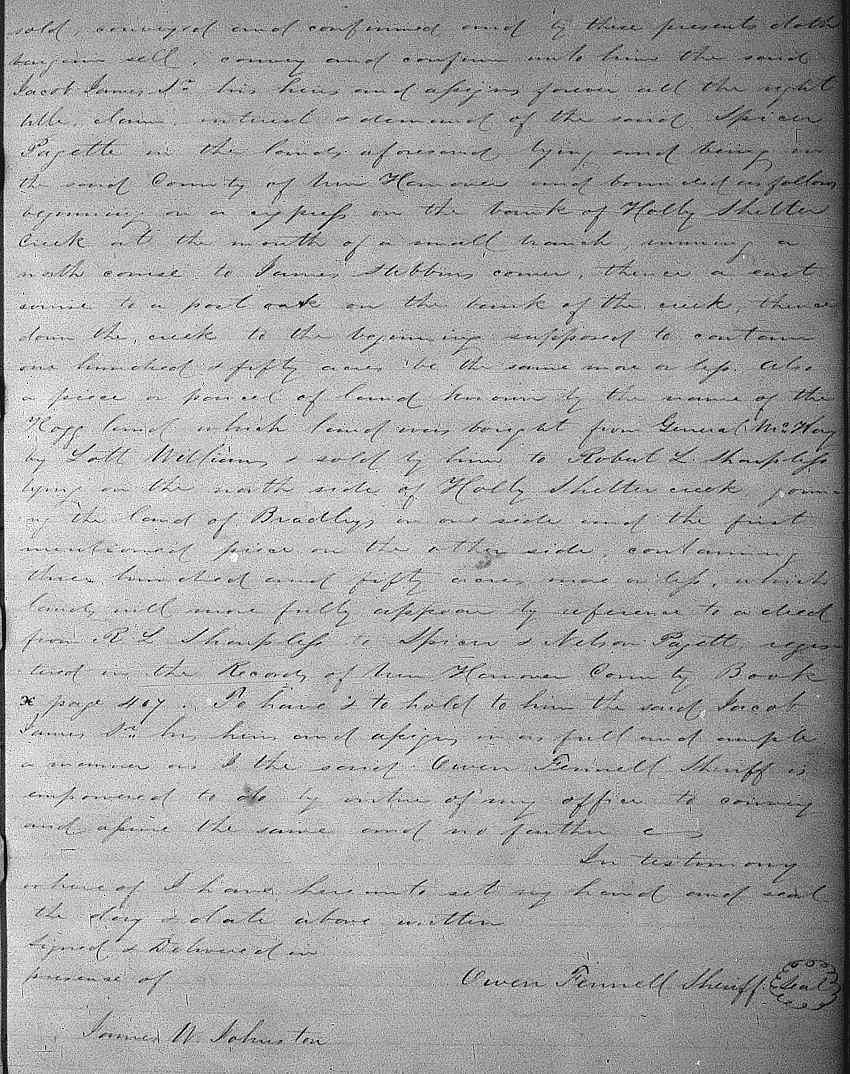 sold, conveyed and confirmed and by these presents doth
bargain sell, convey and confirm unto him the said
Jacob James Sr his heirs and assigns forever all the right
title, claim, interest & demand of the said Spicer
Pagette in the lands aforesaid lying and being in
the said County of New Hanover and bounded as follows
beginning on a cypress on the bank of Holly Shelter
Creek at the mouth of a small branch, running a
north course to James Stebbins corner, thence a east
course to a post oak on the bank of the creek, thence
down the creek to the beginning supposed to contain
one hundred & fifty acres be the same more or less. Also
a piece or parcel of land known by the name of the
Hogg land which land was bought from General McKay
by Lott Williams & sold by him to Robert L. Sharpless
lying on the north side of Holly Shelter creek, joinn-
ng the land of Bradleys on one side and the first
mentioned piece on the other side, containing
three hundred and fifty acres more or less, which
lands will more fully appear by reference to a deed
from R L Sharpless to Spicer & Nelson Pagett, regis-
tered in the Records of New Hanover County Book
page 407. To have & to hold to him the said Jacob
James Sr his heirs and assigns in as full and ample
a manner as I the said Owen Fennell Sheriff is
empowered to do by virtue of my office to convey
and assure the same and no farther
In testimony
where of I have here unto set my hand and seal
the day & date above written
Signed & Delivered in
presense of
Owen Fennell Sheriff Seal
James W. Johnston